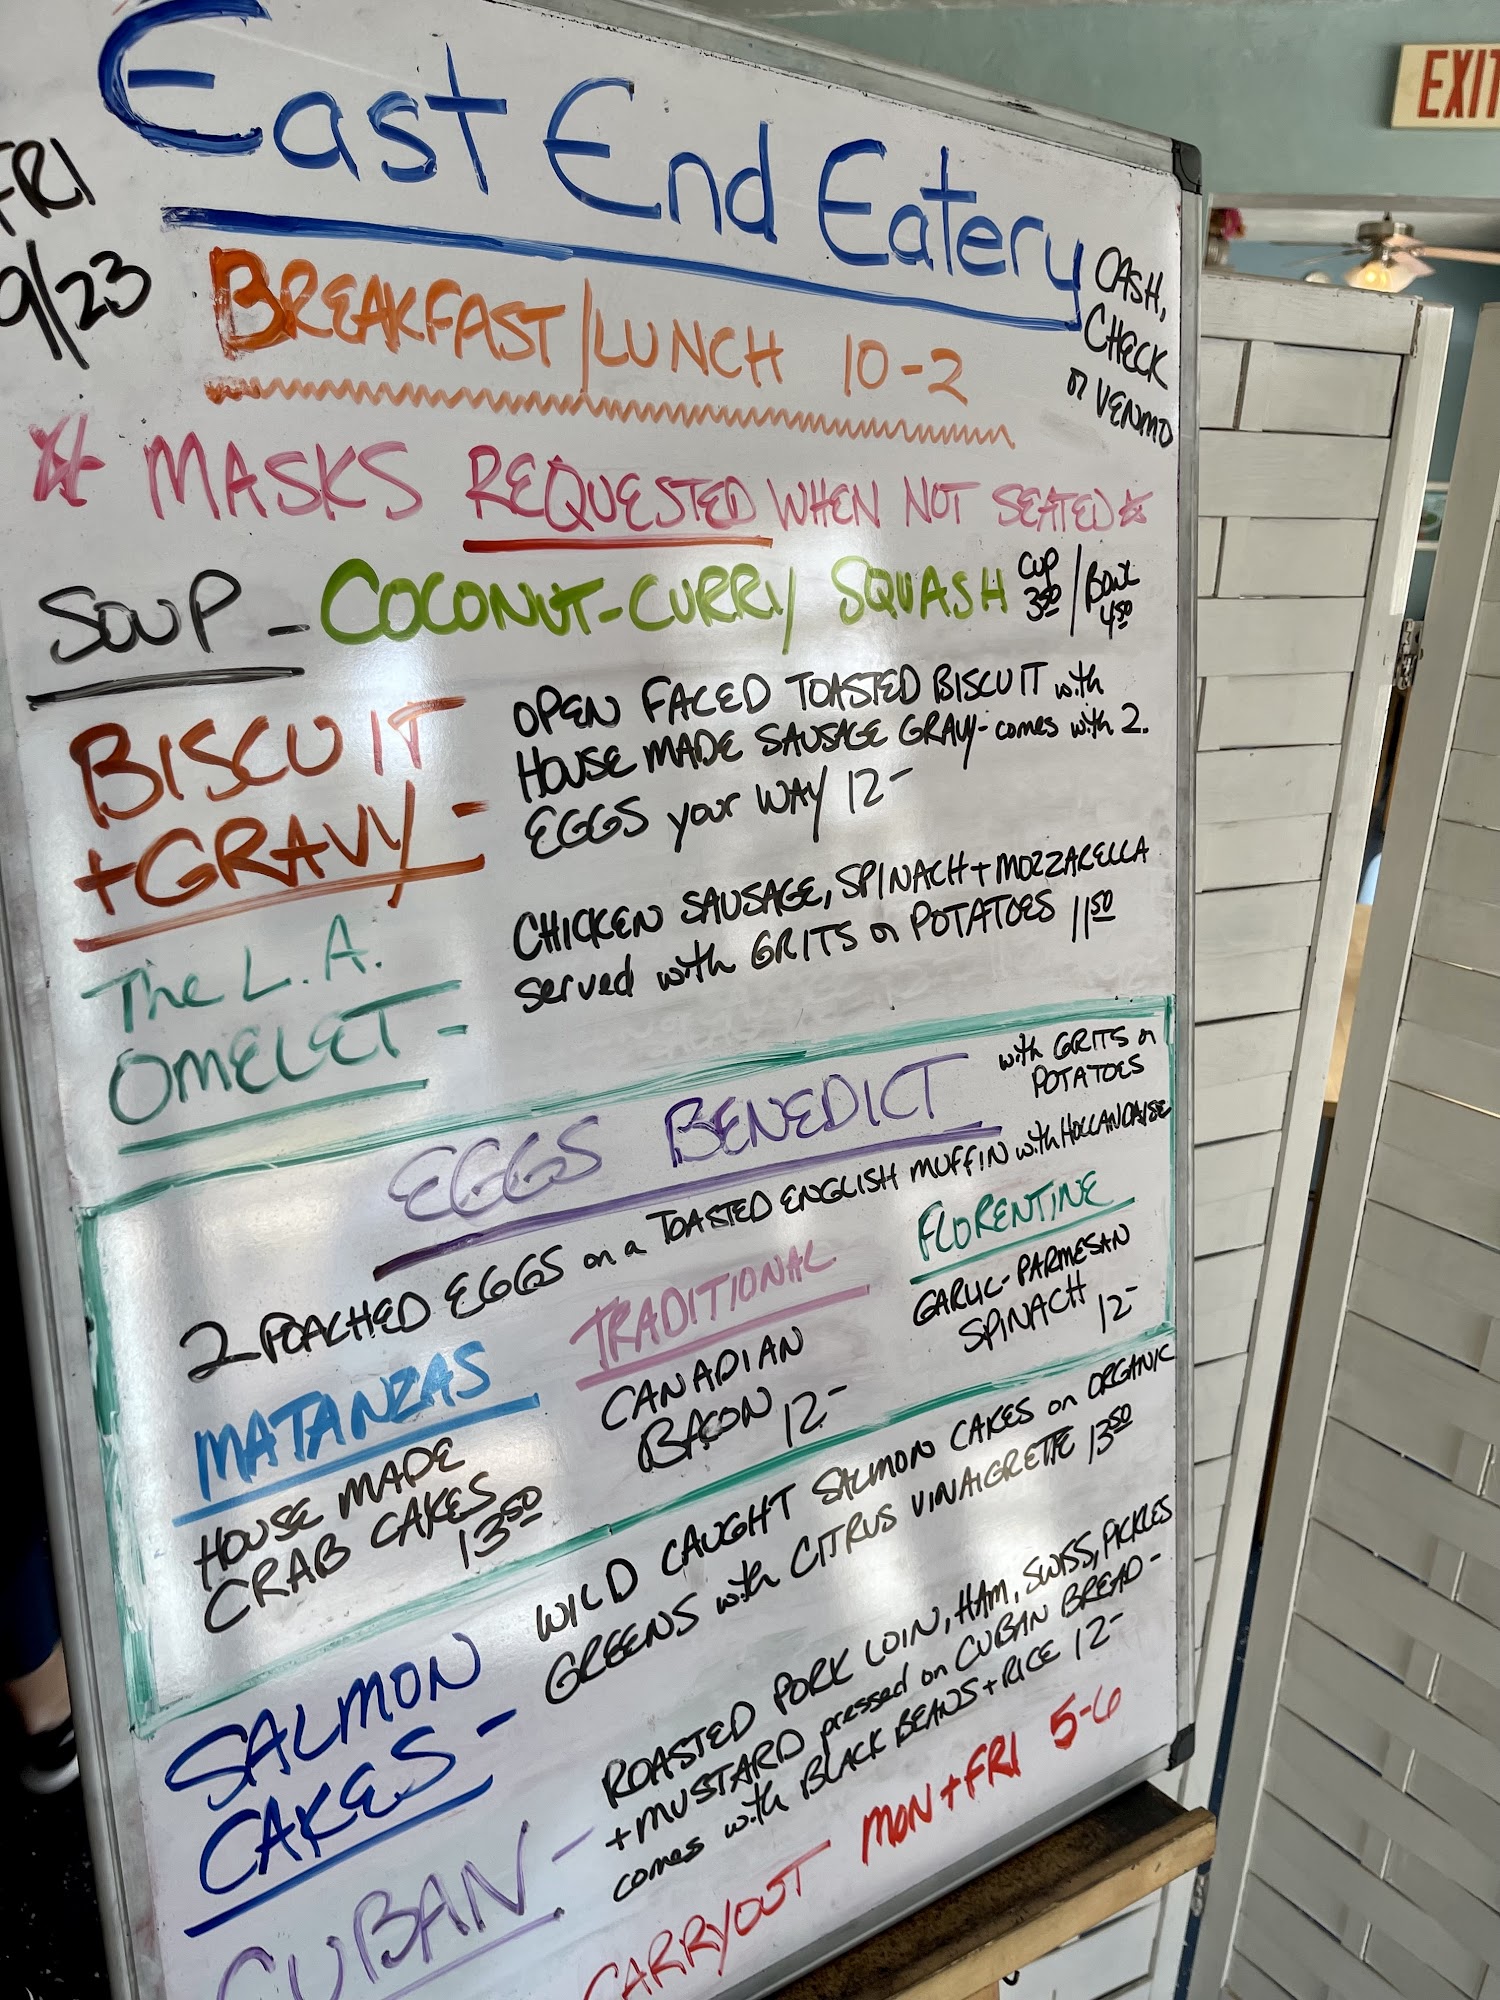 East End Eatery
FRI
9/23
CASH,
CHECK
or VENMO
BREAKFAST/LUNCH 10-2
☆ MASKS REQUESTED WHEN NOT SEATED ☆
SOUP - COCONUT-CURRY SQUASH CUP 3.50 / BOWL 4.50
BISCUIT
+GRAVY -
OPEN FACED TOASTED BISCUIT with
HOUSE MADE SAUSAGE GRAVY- comes with 2.
EGGS your WAY 12-
The L.A.
OMELET -
CHICKEN SAUSAGE, SPINACH + MOZZARELLA
served with GRITS or POTATOES 11.50
EGGS BENEDICT
with GRITS or
POTATOES
2 POACHED EGGS on a TOASTED ENGLISH MUFFIN with HOLLANDAISE
MATANZAS
HOUSE MADE
CRAB CAKES
13.50
TRADITIONAL
CANADIAN
BACON 12-
FLORENTINE
GARLIC-PARMESAN
SPINACH 12-
SALMON
CAKES -
WILD CAUGHT SALMON CAKES on ORGANIC
GREENS with CITRUS VINAIGRETTE 13.50
CUBAN -
ROASTED PORK LOIN, HAM, SWISS, PICKLES
+ MUSTARD pressed on CUBAN BREAD -
comes with BLACK BEANS + RICE 12-
CARRYOUT MON + FRI 5-6
EXIT